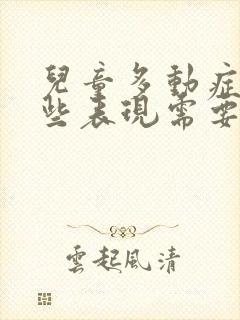 兒童多動症
些表現需要
雲起風清